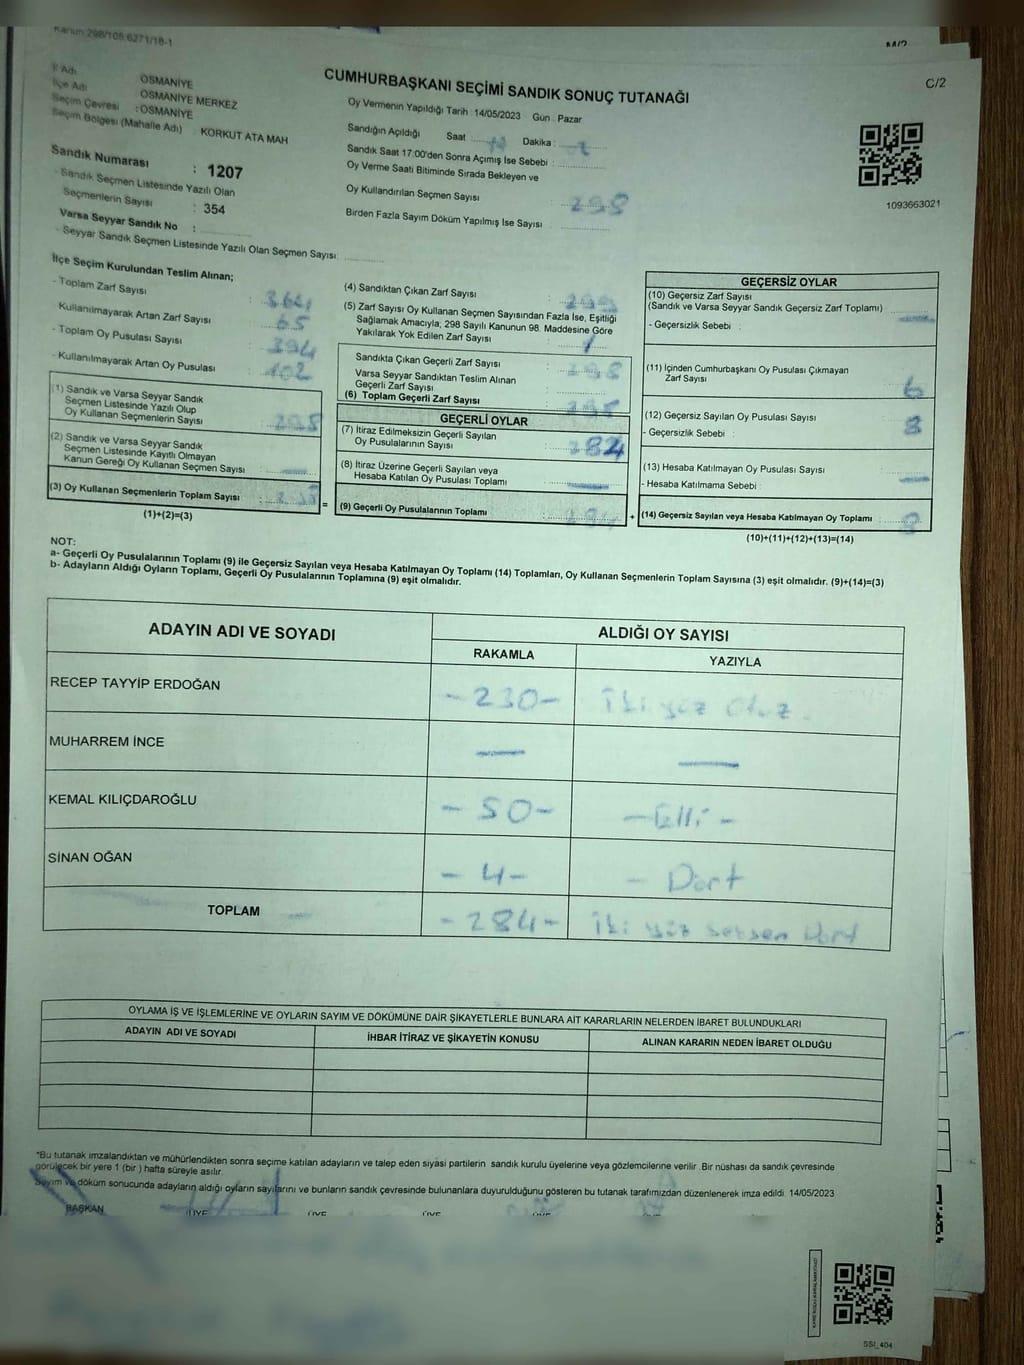 Kanun 298/108 6271/18-1
C/2
CUMHURBAŞKANI SEÇİMİ SANDIK SONUÇ TUTANAĞI
İl Adı OSMANİYE
İlçe Adı OSMANİYE MERKEZ
Seçim Çevresi : OSMANİYE
Seçim Bölgesi (Mahalle Adı) : KORKUT ATA MAH
Sandık Numarası : 1207
- Sandık Seçmen Listesinde Yazılı Olan
Seçmenlerin Sayısı : 354
Varsa Seyyar Sandık No :
- Seyyar Sandık Seçmen Listesinde Yazılı Olan Seçmen Sayısı
Oy Vermenin Yapıldığı Tarih : 14/05/2023 Gün : Pazar
Sandığın Açıldığı Saat Dakika :
Sandık Saat 17:00'den Sonra Açımış İse Sebebi :
Oy Verme Saati Bitiminde Sırada Bekleyen ve
Oy Kullandırılan Seçmen Sayısı : 298
Birden Fazla Sayım Döküm Yapılmış İse Sayısı
1093663021
İlçe Seçim Kurulundan Teslim Alınan;
- Toplam Zarf Sayısı :
Kullanılmayarak Artan Zarf Sayısı : 65
- Toplam Oy Pusulası Sayısı : 394
- Kullanılmayarak Artan Oy Pusulası : 102
(1) Sandık ve Varsa Seyyar Sandık
Seçmen Listesinde Yazılı Olup
Oy Kullanan Seçmenlerin Sayısı
(2) Sandık ve Varsa Seyyar Sandık
Seçmen Listesinde Kayıtlı Olmayan
Kanun Gereği Oy Kullanan Seçmen Sayısı
(3) Oy Kullanan Seçmenlerin Toplam Sayısı
(1)+(2)=(3)
(4) Sandıktan Çıkan Zarf Sayısı : 299
(5) Zarf Sayısı Oy Kullanan Seçmen Sayısından Fazla İse, Eşitliği
Sağlamak Amacıyla; 298 Sayılı Kanunun 98. Maddesine Göre
Yakılarak Yok Edilen Zarf Sayısı : 1
Sandıkta Çıkan Geçerli Zarf Sayısı : 298
Varsa Seyyar Sandıktan Teslim Alınan
Geçerli Zarf Sayısı
(6) Toplam Geçerli Zarf Sayısı
GEÇERLİ OYLAR
(7) İtiraz Edilmeksizin Geçerli Sayılan
Oy Pusulalarının Sayısı : 284
(8) İtiraz Üzerine Geçerli Sayılan veya
Hesaba Katılan Oy Pusulası Toplamı
(9) Geçerli Oy Pusulalarının Toplamı 284
GEÇERSİZ OYLAR
(10) Geçersiz Zarf Sayısı
(Sandık ve Varsa Seyyar Sandık Geçersiz Zarf Toplamı)
- Geçersizlik Sebebi :
(11) İçinden Cumhurbaşkanı Oy Pusulası Çıkmayan
Zarf Sayısı 6
(12) Geçersiz Sayılan Oy Pusulası Sayısı 8
- Geçersizlik Sebebi :
(13) Hesaba Katılmayan Oy Pusulası Sayısı
- Hesaba Katılmama Sebebi :
(14) Geçersiz Sayılan veya Hesaba Katılmayan Oy Toplamı
(10)+(11)+(12)+(13)=(14)
NOT:
a- Geçerli Oy Pusulalarının Toplamı (9) ile Geçersiz Sayılan veya Hesaba Katılmayan Oy Toplamı (14) Toplamları, Oy Kullanan Seçmenlerin Toplam Sayısına (3) eşit olmalıdır. (9)+(14)=(3)
b- Adayların Aldığı Oyların Toplamı, Geçerli Oy Pusulalarının Toplamına (9) eşit olmalıdır.
ADAYIN ADI VE SOYADI ALDIĞI OY SAYISI
RAKAMLA YAZIYLA
RECEP TAYYİP ERDOĞAN -230- İki yüz Otuz
MUHARREM İNCE — —
KEMAL KILIÇDAROĞLU -50- -Elli-
SİNAN OĞAN -4- - Dört
TOPLAM -284- İki yüz seksen Dört
OYLAMA İŞ VE İŞLEMLERİNE VE OYLARIN SAYIM VE DÖKÜMÜNE DAİR ŞİKAYETLERLE BUNLARA AİT KARARLARIN NELERDEN İBARET BULUNDUKLARI
ADAYIN ADI VE SOYADI İHBAR İTİRAZ VE ŞİKAYETİN KONUSU ALINAN KARARIN NEDEN İBARET OLDUĞU
*Bu tutanak imzalandıktan ve mühürlendikten sonra seçime katılan adayların ve talep eden siyasi partilerin sandık kurulu üyelerine veya gözlemcilerine verilir. Bir nüshası da sandık çevresinde
görülecek bir yere 1 (bir) hafta süreyle asılır.
Sayım ve döküm sonucunda adayların aldığı oyların sayılarını ve bunların sandık çevresinde bulunanlara duyurulduğunu gösteren bu tutanak tarafımızdan düzenlenerek imza edildi. 14/05/2023
BAŞKAN ÜYE ÜYE ÜYE ÜYE
SSI_404